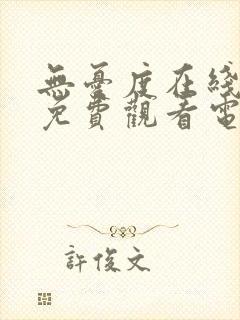 無憂度在綫
免費觀看電
許俊文